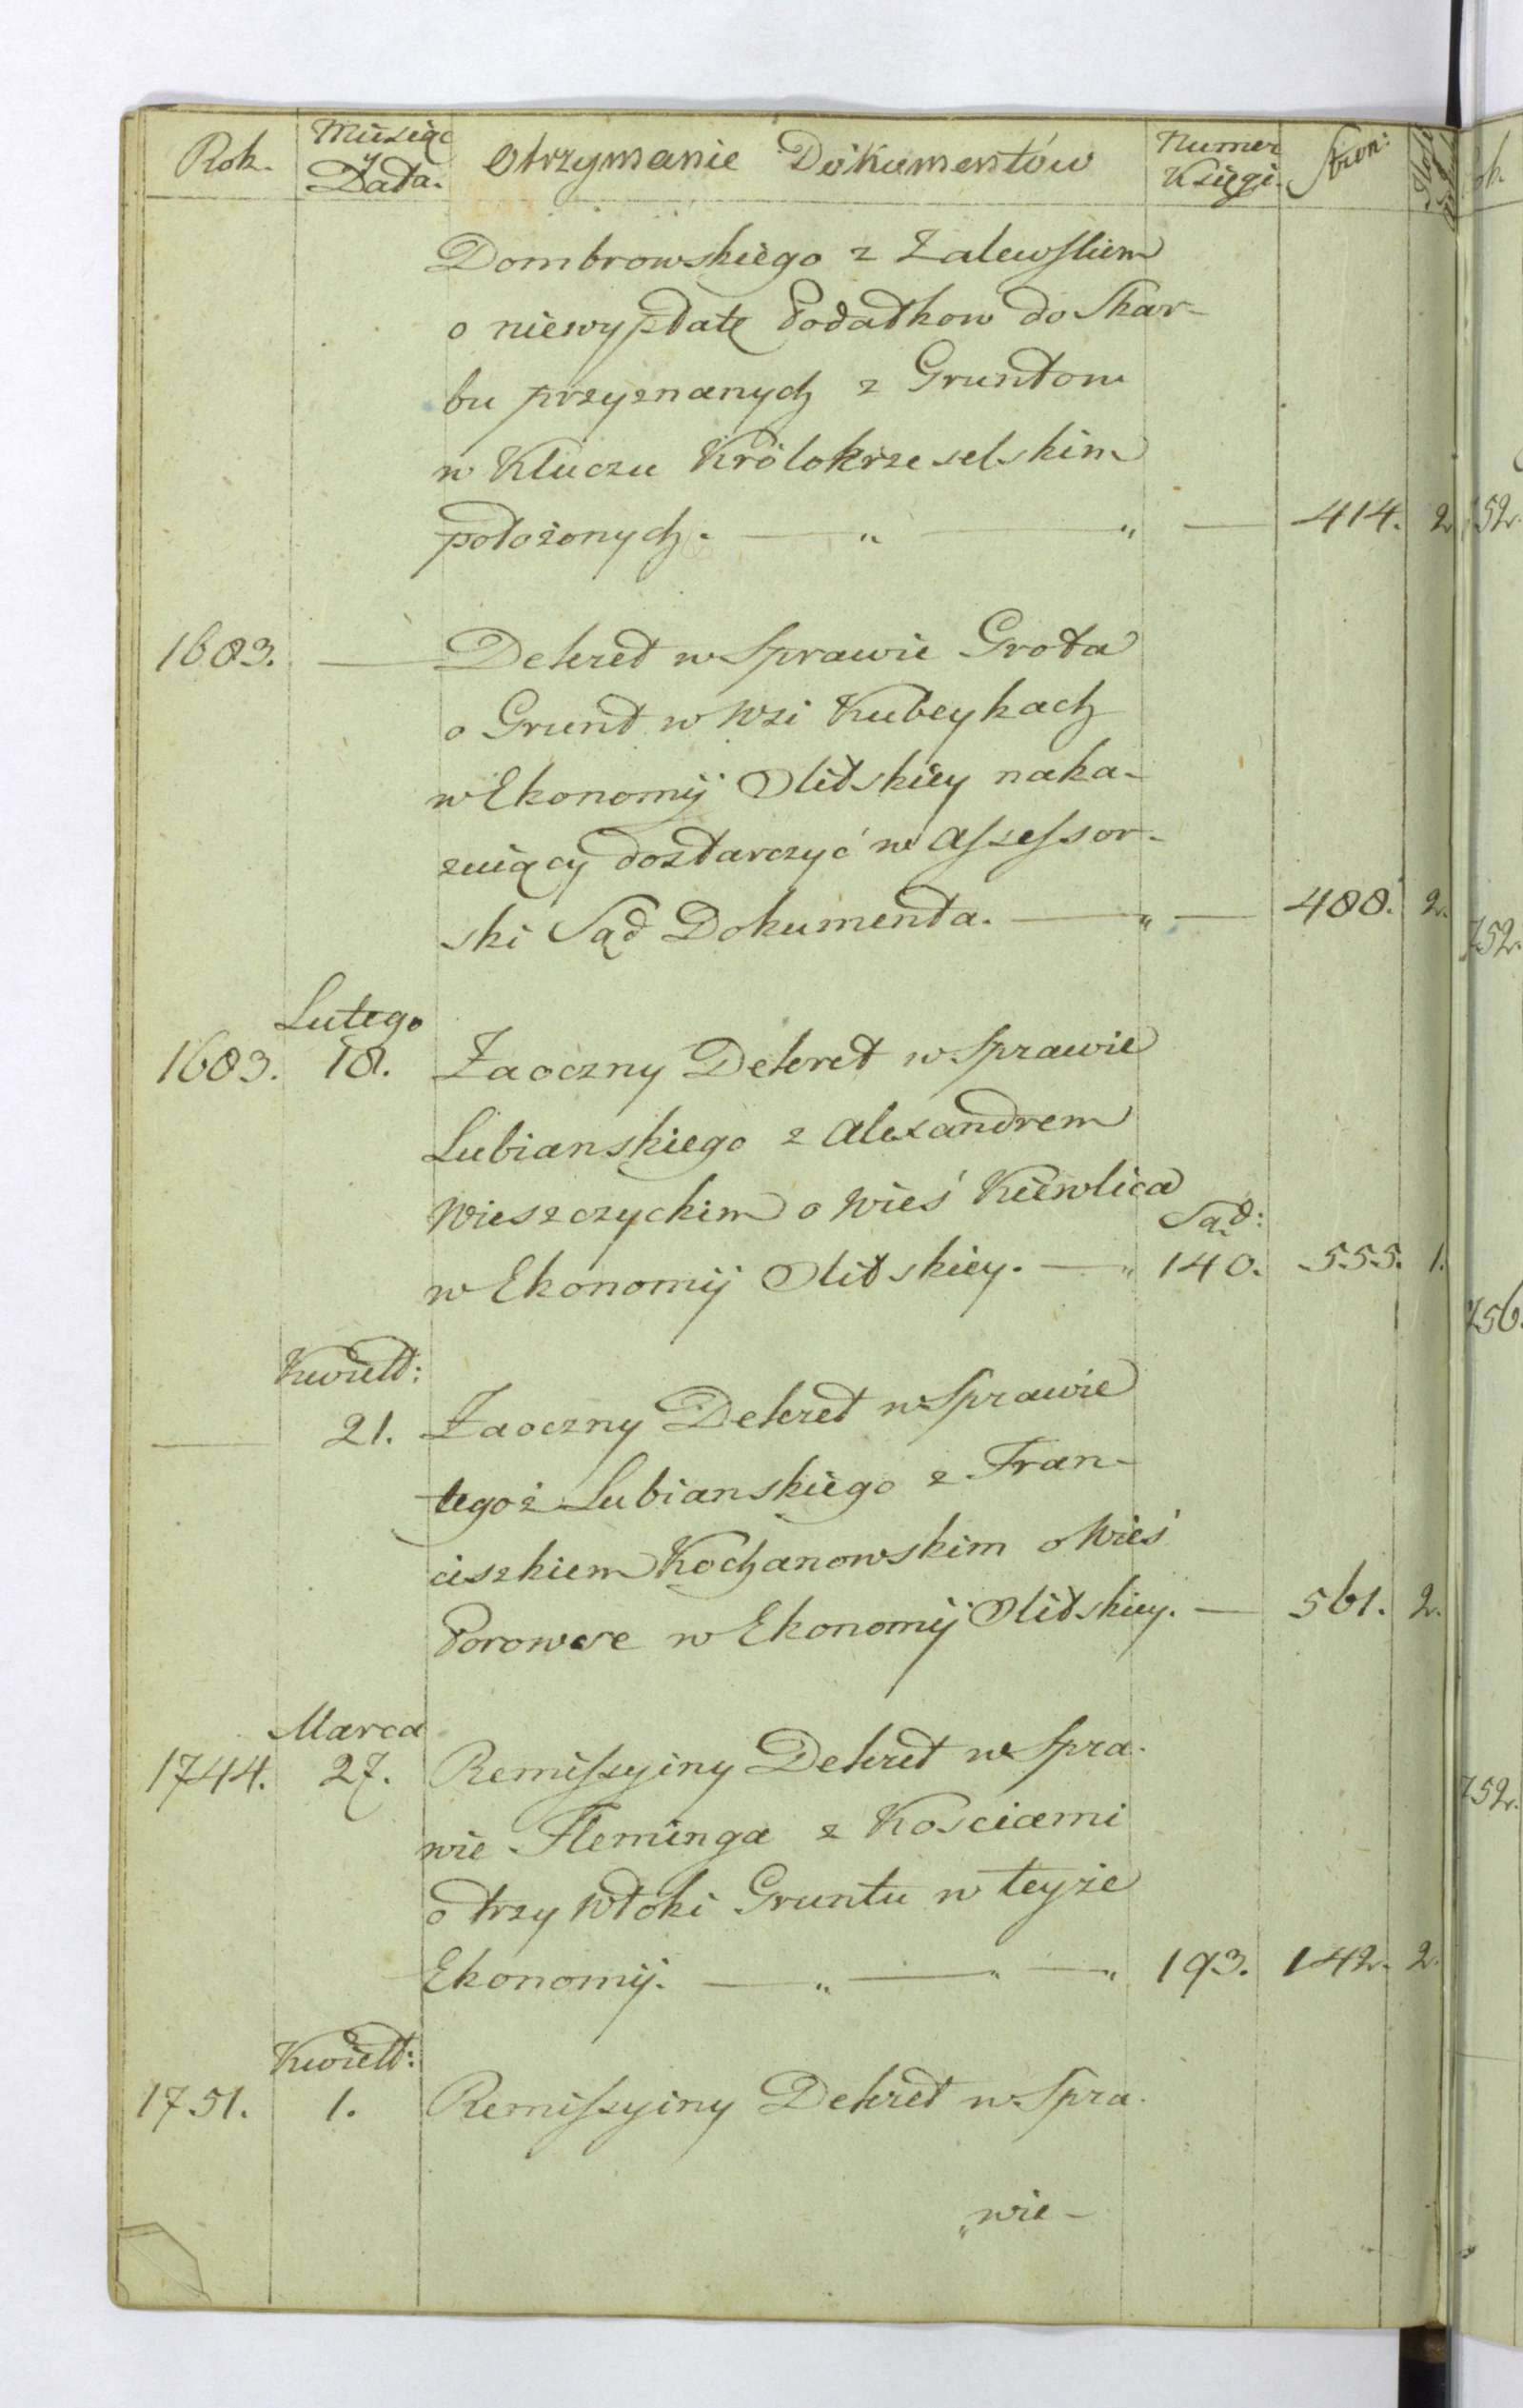 Rok. Miesiąc y Data. Otrzymanie Dokumentów Numer Księgi. Stron:
Dombrowskiego z Zalewskiem
o niewypłatę Podatkow do Skar-
bu przyznanych z Gruntow
w Kluczu Królokrzeselskim
położonych. — „ — „ — 414. 2
1683. — Dekret w Sprawie Grota
o Grunt w Wsi Kubeykach
w Ekonomij Olitskiey naka-
zuiący dostarczyć w Assessor-
ski Sąd Dokumenta. — „ — 488. 2.
Lutego
1683. 18. Zaoczny Dekret w Sprawie
Lubianskiego z Alexandrem
Wieszczyckim o Wieś Kiewlica
Sąd:
w Ekonomij Olitskiey. — „ 140. 555. 1.
Kwiet:
— 21. Zaoczny Dekret w Sprawie
tegoż Lubianskiego z Fran-
ciszkiem Kochanowskim o Wieś
w Ekonomij Olitskiey. — 561. 2.
Marca
1744. 27. Remissyiny Dekret w Spra-
wie Fleminga z Kosciami
o trzy Włoki Gruntu w teyże
Ekonomij. — „ — „ — „ 193. 142. 2.
Kwiet:
1751. 1. Remissyiny Dekret w Spra-
„wie-